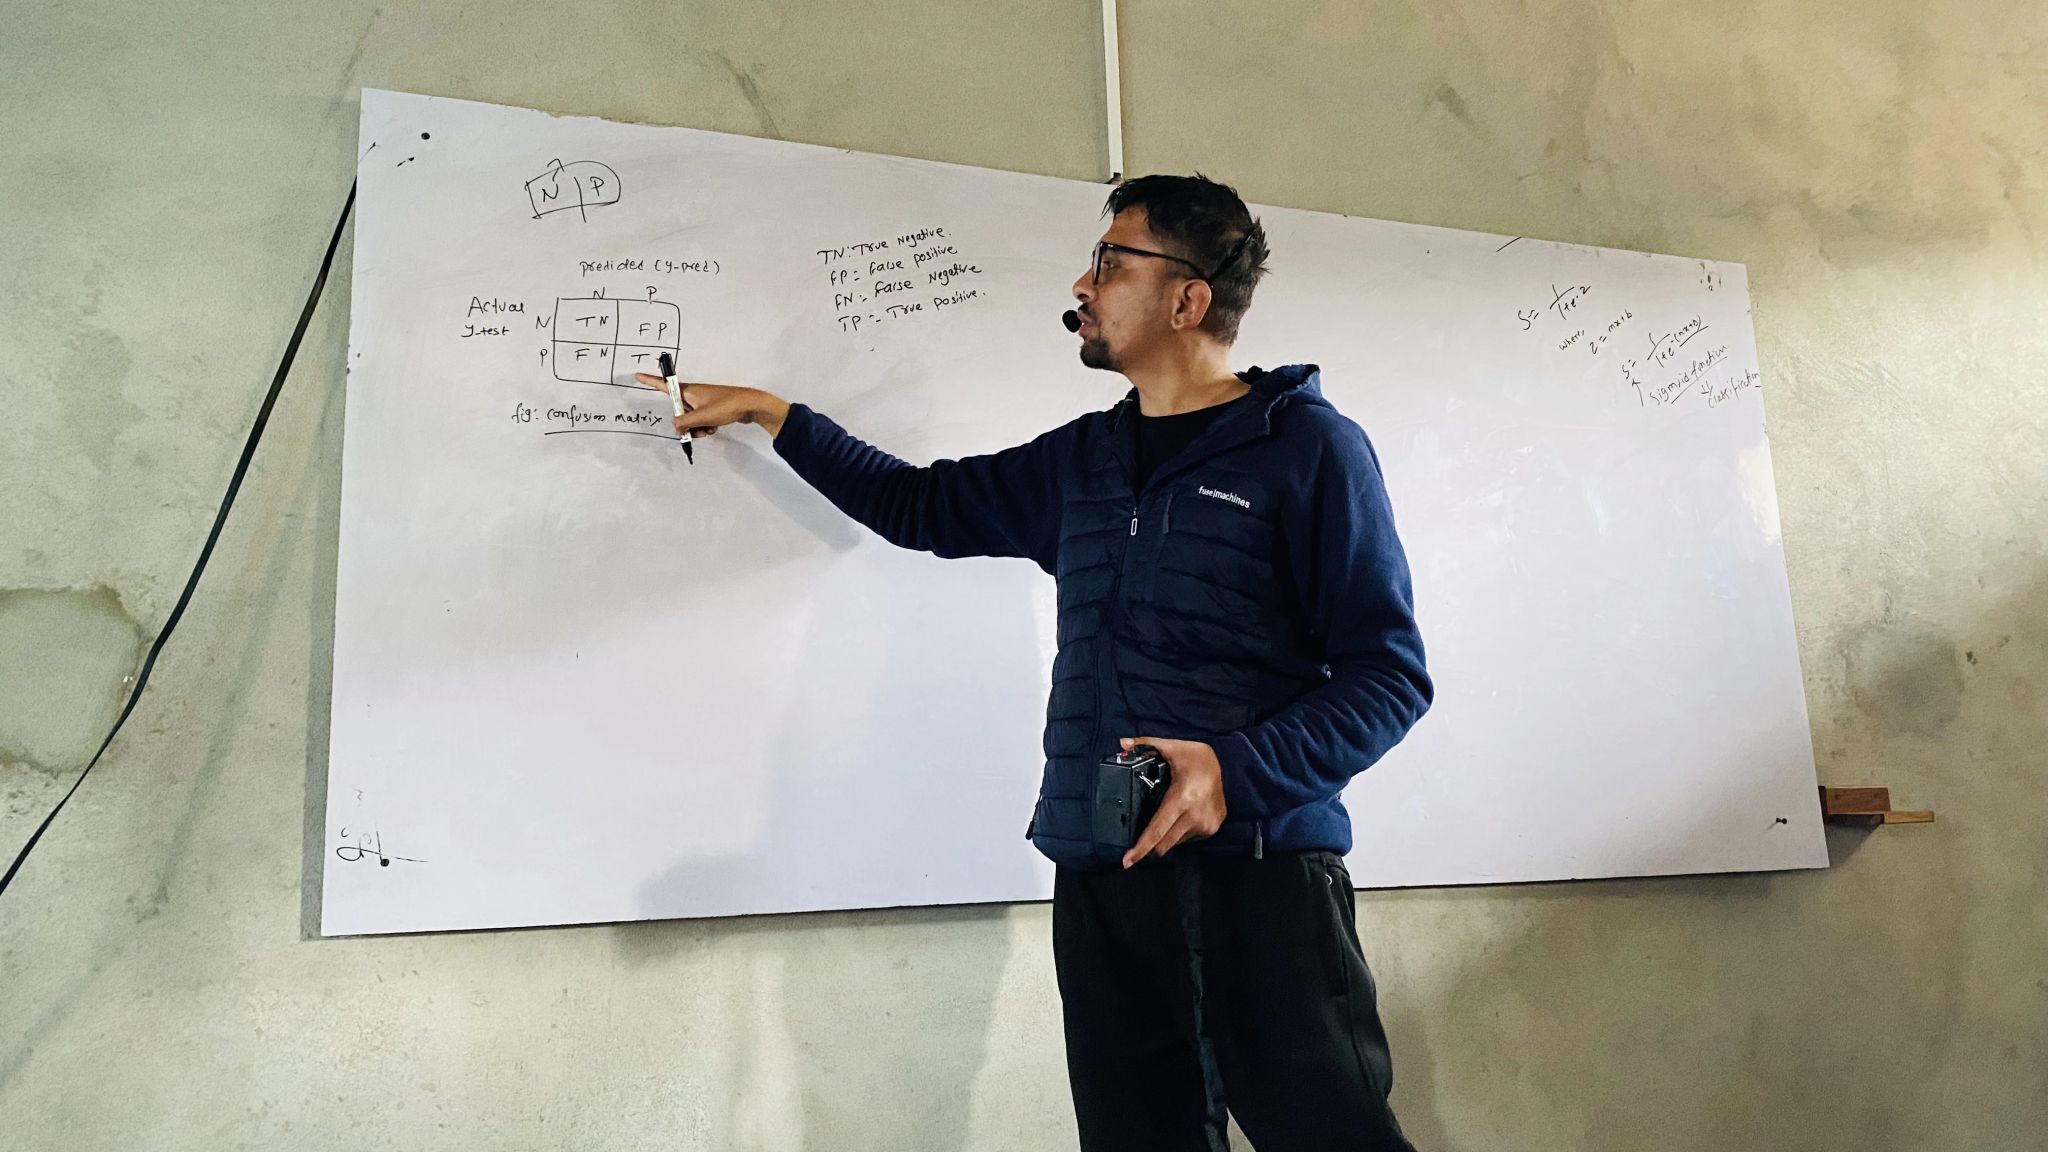 N P
predicted (y-pred)
N P
Actual
y-test
N TN FP
P FN T
fig: confusion matrix
TN: True Negative.
FP = False positive
FN = False Negative
TP = True positive.
S = 1/1+e-z
where,
z = mx+b
S = 1/1+e-(mx+b)
Sigmoid function
classification
fuse|machines